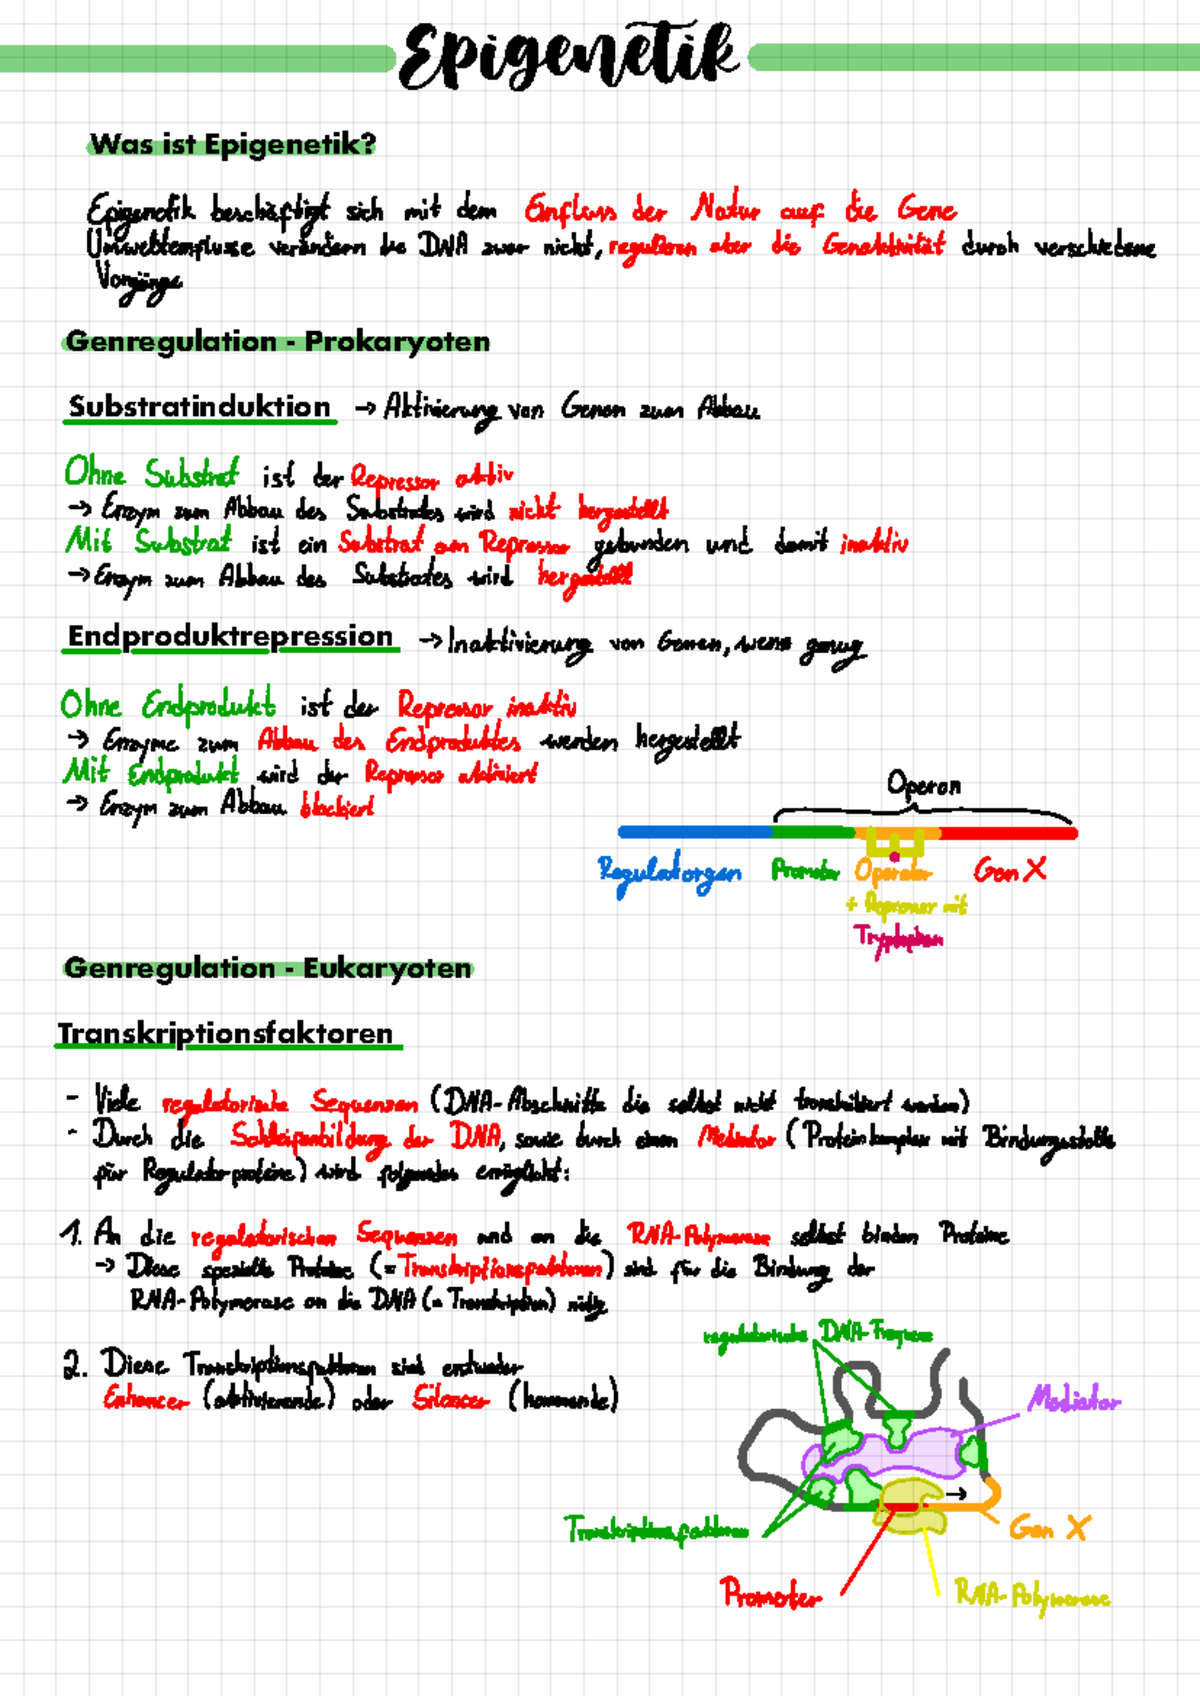 Epigenetik
Was ist Epigenetik?
Epigenetik beschäftigt sich mit dem Einfluss der Natur auf die Gene
Umwelteinflüsse verändern die DNA zwar nicht, regulieren aber die Genaktivität durch verschiedene
Vorgänge
Genregulation - Prokaryoten
Substratinduktion → Aktivierung von Genen zum Abbau
Ohne Substrat ist der Repressor aktiv
→ Enzym zum Abbau des Substrates wird nicht hergestellt
Mit Substrat ist ein Substrat am Repressor gebunden und damit inaktiv
→ Enzym zum Abbau des Substrates wird hergestellt
Endproduktrepression → Inaktivierung von Genen, wenn genug
Ohne Endprodukt ist der Repressor inaktiv
→ Enzyme zum Abbau des Endproduktes werden hergestellt
Mit Endprodukt wird der Repressor aktiviert
→ Enzym zum Abbau blockiert
Operon
Regulatorgen Promoter Operator Gen X
+ Repressor mit
Tryptophan
Genregulation - Eukaryoten
Transkriptionsfaktoren
- Viele regulatorische Sequenzen (DNA-Abschnitte die selbst nicht transkribiert werden)
- Durch die Schleifenbildung der DNA, sowie durch einen Mediator (Proteinkomplex mit Bindungsstelle
für Regulatorproteine) wird folgendes ermöglicht:
1. An die regulatorischen Sequenzen und an die RNA-Polymerase selbst binden Proteine
→ Diese spezielle Proteine (= Transkriptionsfaktoren) sind für die Bindung der
RNA-Polymerase an die DNA (= Transkription) nötig
2. Diese Transkriptionsfaktoren sind entweder
Enhancer (aktivierende) oder Silencer (hemmende)
regulatorische DNA-Frequenz
Mediator
Transkriptionsfaktoren
Gen X
Promoter
RNA-Polymerase